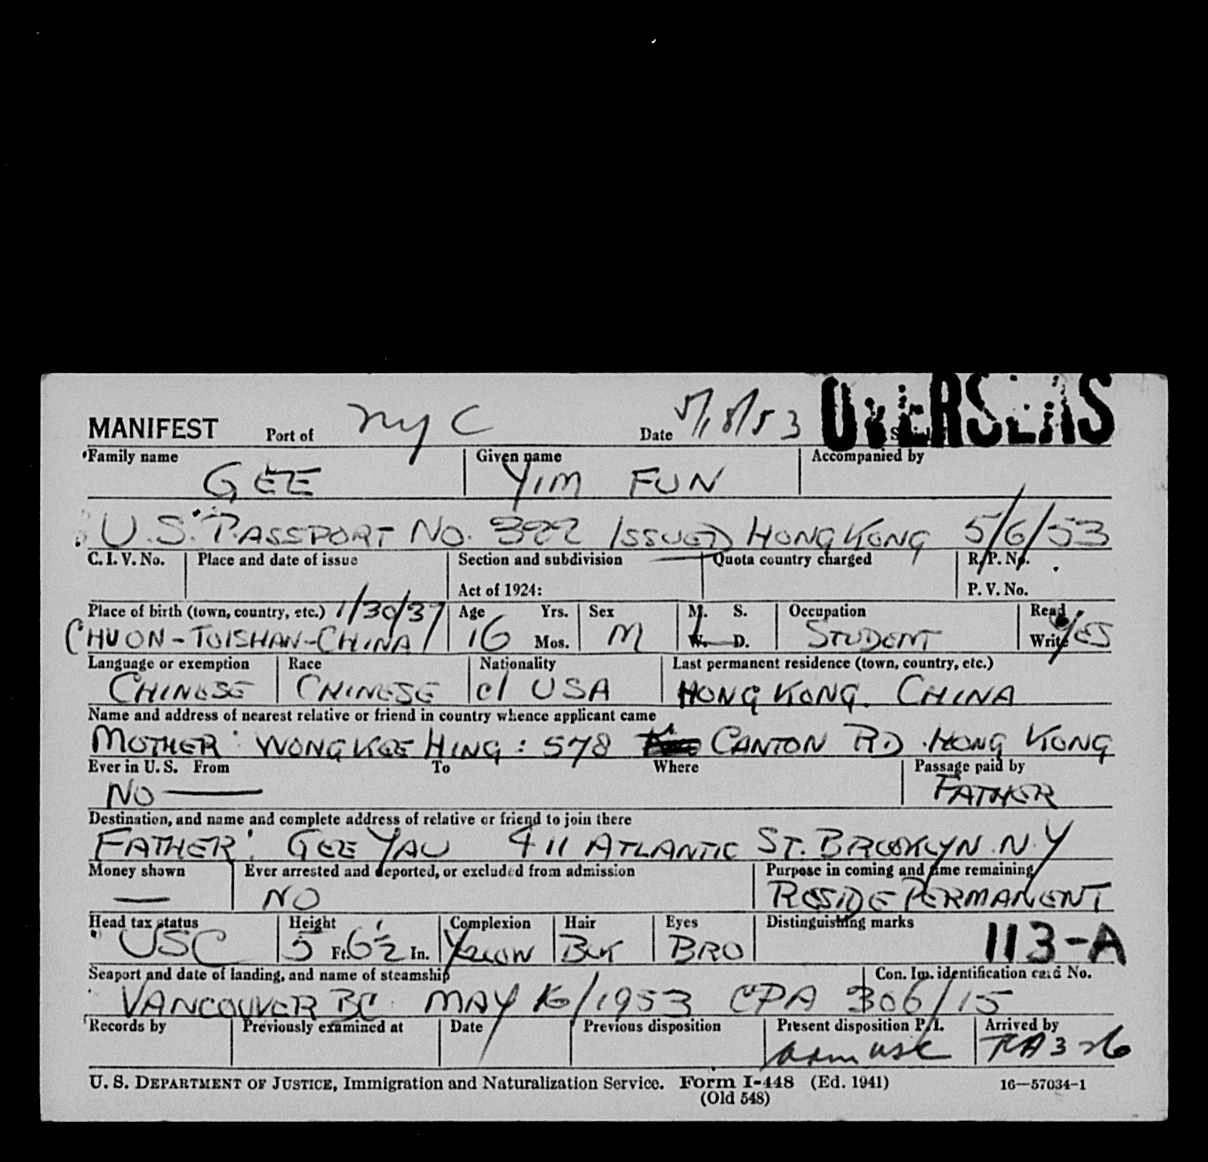 MANIFEST Port of NYC Date 5/18/53 OVERSEAS
Family name Given name Accompanied by
GEE YIM FUN
U.S. PASSPORT NO. 322 ISSUED HONG KONG 5/6/53
C. I. V. No. Place and date of issue Section and subdivision Quota country charged R. P. No.
Act of 1924: P. V. No.
Place of birth (town, country, etc.) 1/30/37 Age Yrs. Sex M. S. Occupation Read
CHUON-TOISHAN-CHINA 16 Mos. M W. D. STUDENT Write YES
Language or exemption Race Nationality Last permanent residence (town, country, etc.)
CHINESE CHINESE cl USA HONG KONG. CHINA
Name and address of nearest relative or friend in country whence applicant came
MOTHER: WONG KEE HING: 578 CANTON RD. HONG KONG
Ever in U. S. From To Where Passage paid by
NO — FATHER
Destination, and name and complete address of relative or friend to join there
FATHER: GEE YAU 411 ATLANTIC ST. BROOKLYN. N.Y
Money shown Ever arrested and deported, or excluded from admission Purpose in coming and time remaining
— NO RESIDE PERMANENT
Head tax status Height Complexion Hair Eyes Distinguishing marks
USC 5 Ft. 6½ In. YELLOW BLK BRO 113-A
Seaport and date of landing, and name of steamship Con. Im. identification card No.
VANCOUVER BC. MAY 16/1953 CPA 306/15
Records by Previously examined at Date Previous disposition Present disposition P. I. Arrived by
adm usc
U. S. DEPARTMENT OF JUSTICE, Immigration and Naturalization Service. Form I-448 (Ed. 1941) 16—57034-1
(Old 548)